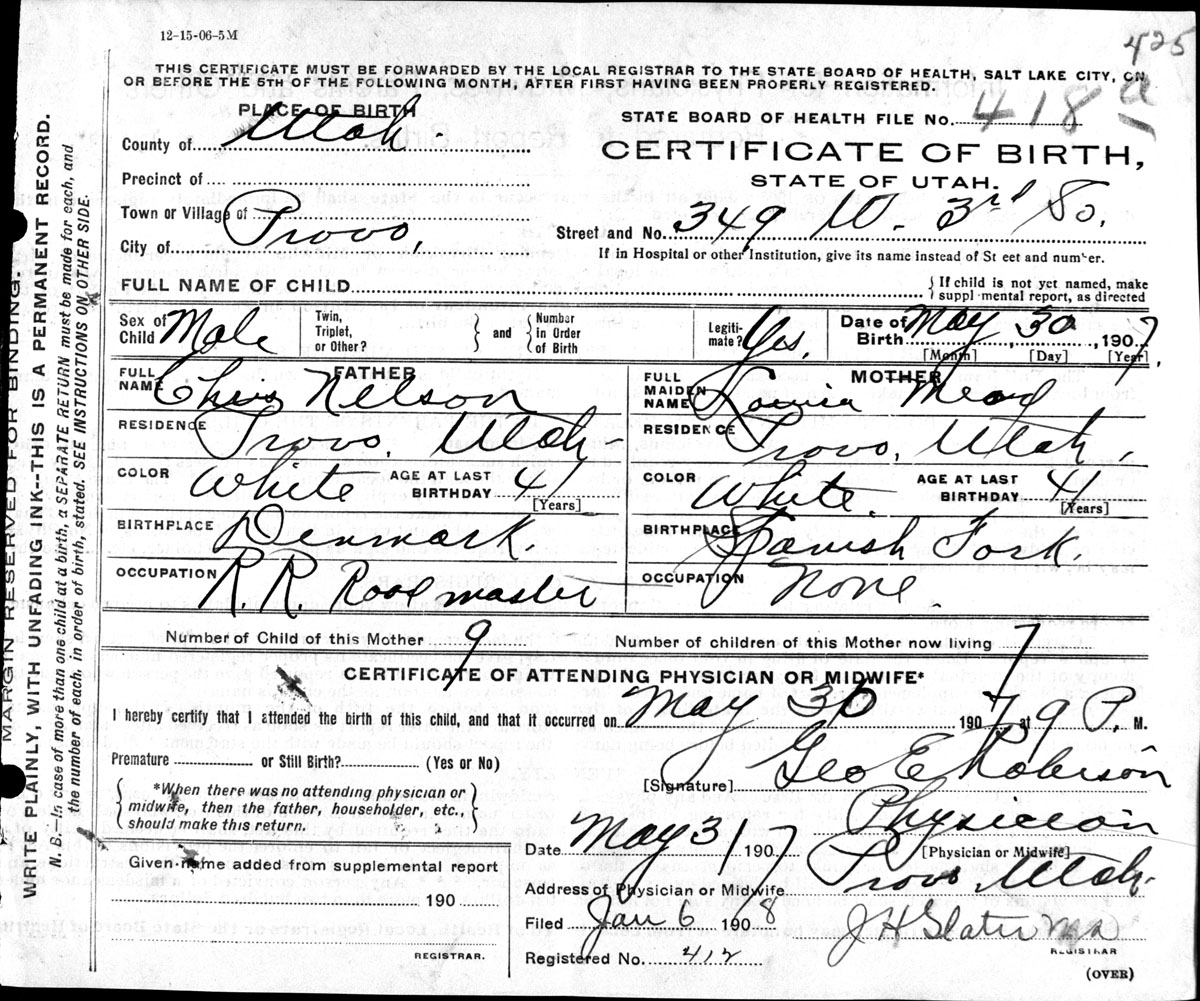 12-15-06-5M
425
THIS CERTIFICATE MUST BE FORWARDED BY THE LOCAL REGISTRAR TO THE STATE BOARD OF HEALTH, SALT LAKE CITY, ON
OR BEFORE THE 5TH OF THE FOLLOWING MONTH, AFTER FIRST HAVING BEEN PROPERLY REGISTERED.
PLACE OF BIRTH
STATE BOARD OF HEALTH FILE No. 418 a
County of Utah.
CERTIFICATE OF BIRTH,
STATE OF UTAH.
Precinct of
Town or Village of
City of Provo,
Street and No. 349 W. 3rd So.
If in Hospital or other Institution, give its name instead of St eet and number.
FULL NAME OF CHILD
{ If child is not yet named, make
suppl mental report, as directed
Sex of Child Male
Twin, Triplet, or Other?
and
Number in Order of Birth
Legiti- mate? Yes.
Date of Birth May 30, 1907.
[Month] [Day] [Year]
FATHER
FULL NAME Chris Nelson
RESIDENCE Provo, Utah.
COLOR White AGE AT LAST BIRTHDAY 41
[Years]
BIRTHPLACE Denmark.
OCCUPATION R. R. Roadmaster
MOTHER
FULL MAIDEN NAME
RESIDENCE Provo, Utah.
COLOR White. AGE AT LAST BIRTHDAY 41
[Years]
BIRTHPLACE Spanish Fork
OCCUPATION None.
Number of Child of this Mother 9
Number of children of this Mother now living 7
CERTIFICATE OF ATTENDING PHYSICIAN OR MIDWIFE*
I hereby certify that I attended the birth of this child, and that it occurred on May 30 1907, at 9 P. M.
Premature or Still Birth? (Yes or No)
[Signature] Geo E Robison
*When there was no attending physician or
midwife, then the father, householder, etc.,
should make this return.
Physician
Date May 31 1907
[Physician or Midwife]
Given name added from supplemental report
190
Address of Physician or Midwife Provo Utah.
Filed Jan 6 1908 J H Slater
REGISTRAR.
REGISTRAR
Registered No. 412
(OVER)
MARGIN RESERVED FOR BINDING.
WRITE PLAINLY, WITH UNFADING INK--THIS IS A PERMANENT RECORD.
N. B.--In case of more than one child at a birth, a SEPARATE RETURN must be made for each, and
the number of each, in order of birth, stated. SEE INSTRUCTIONS ON OTHER SIDE.